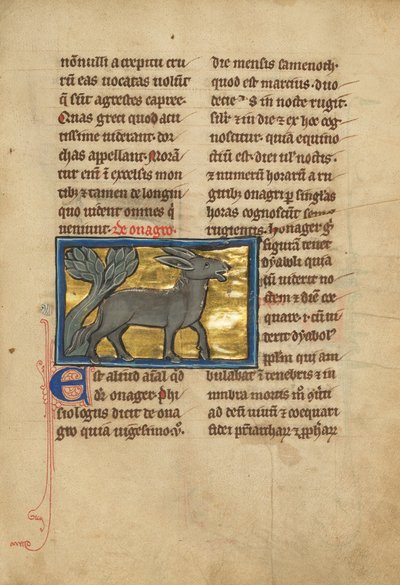 nõnulli a crepitu cru
rũ eas uocatas uolũt
q̃ sũt agrestes capree.
Quas greci quod acu
tissime uiderant. dor
chas appellant. Morã
tur eni ĩ excelsis mon
tibꝫ ⁊ tamen de longin
quo uident omnes q̃
ueniunt. De onagro.
Est aliud aĩal qd
dr̃ onager. Phi
siologus dicit de ona
gro quia uigesimo q̃.
die mensis famenoth.
quod est marcius. duo
decies in nocte rugit.
silr̃ ⁊ in die ⁊ ex hoc cog
noscitur. quia equino
ctiũ est. diei ul̃ noctis.
⁊ numerũ horarũ a ru
gitibꝫ onagri ꝑ singlas
horas cognoscũt semꝑ
rugientis. Honager g̃
figurã tenet
dyaboli quia
cũ uiderit no
ctem ⁊ diẽ co
quare. i. cũ ui
derit dyabol᷒
ppl̃m qui am
bulabat ĩ tenebris ⁊ in
umbra mortis m̊ cõuti
ad dẽũ uiuũ ⁊ coequari
fidei pr̃iarcharꝝ ⁊ ꝓph̃arꝝ